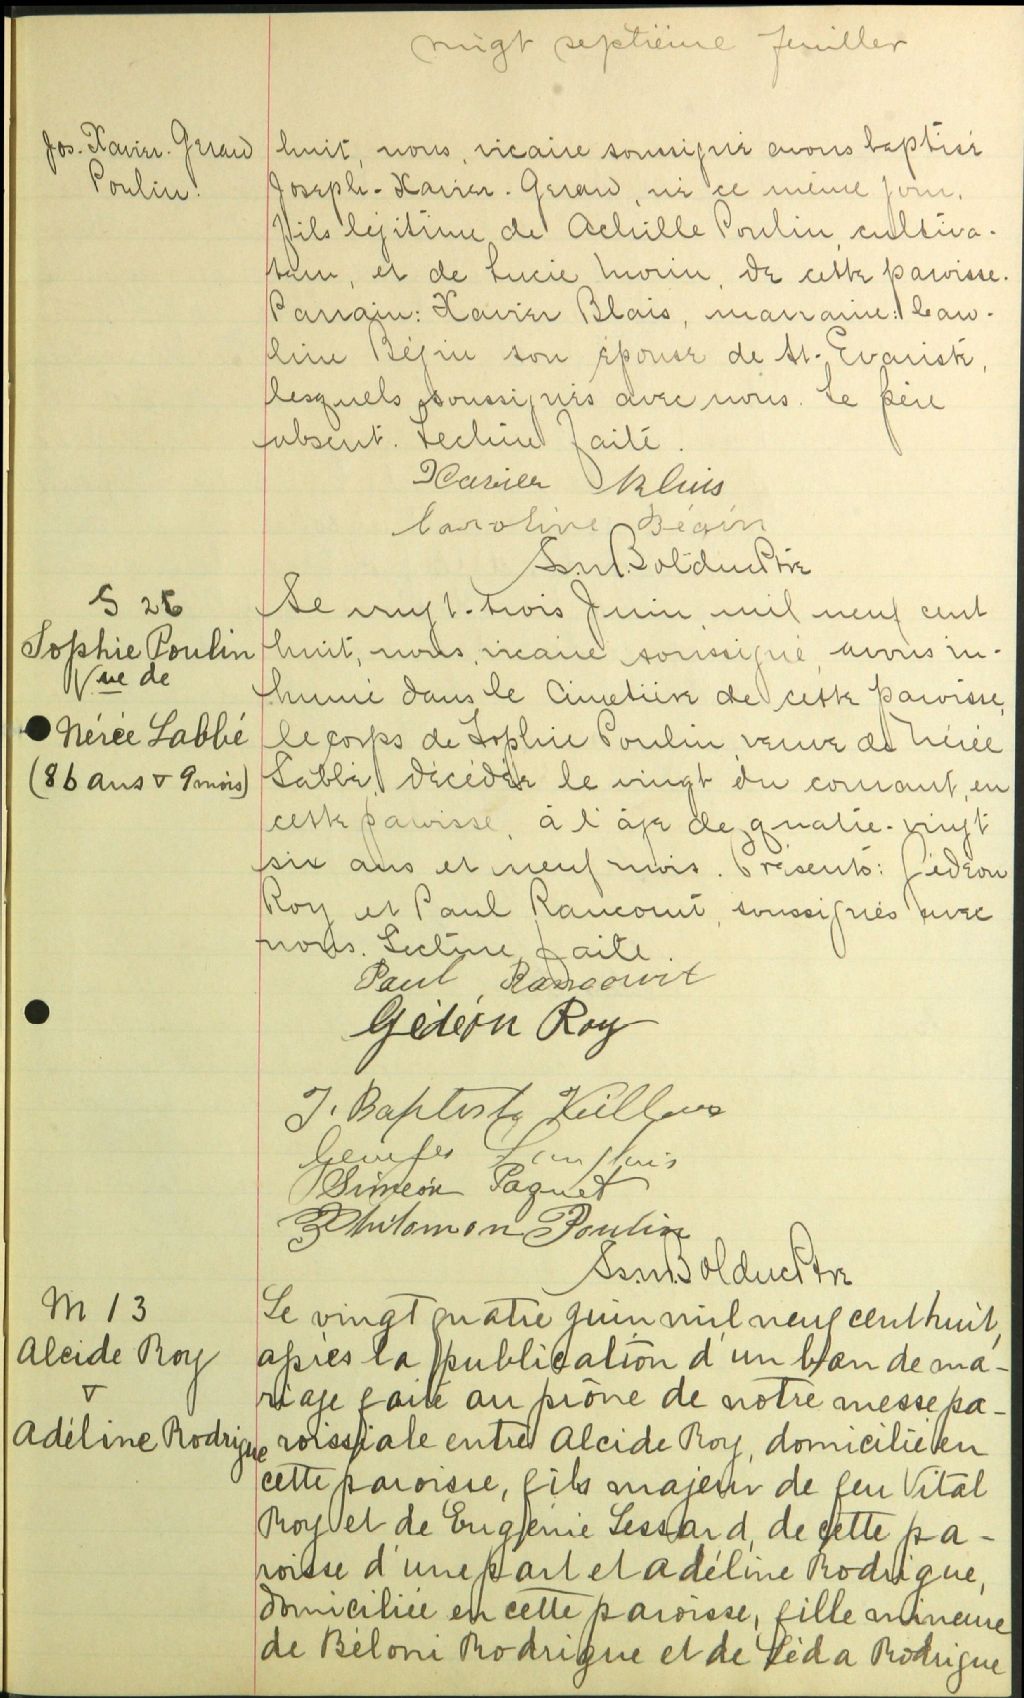 vingt septième feuillet
Jos. Xavier. Gerard
Poulin.
huit, nous, vicaire soussigné avons baptisé
Joseph-Xavier-Gerard, né ce même jour,
fils légitime de Achille Poulin, cultiva-
teur, et de Lucie Morin, de cette paroisse.
Parrain: Xavier Blais, marraine: Caro-
line Bégin son épouse de St-Evariste,
lesquels soussignés avec nous. Le père
absent. Lecture faite.
Xavier Blais
Caroline Bégin
Bolduc Ptre
S 26
Sophie Poulin
Vve de
Nérée Labbé
(86 ans & 9 mois)
Le vingt-trois Juin mil neuf cent
huit, nous, vicaire soussigné, avons in-
humé dans le cimetière de cette paroisse,
le corps de Sophie Poulin veuve de Nérée
Labbé, décédée le vingt du courant, en
cette paroisse, à l'âge de quatre-vingt
six ans et neuf mois. Présents: Gédéon
Roy et Paul Rancourt, soussignés avec
nous. Lecture faite.
Paul Rancourt
Gédéon Roy
J. Baptiste
Georges Langlois
Siméon Paquet
Philomon Poulin
Bolduc Ptre
M 13
Alcide Roy
&
Adéline Rodrigue
Le vingt quatre juin mil neuf cent huit,
après la publication d'un ban de ma-
riage faite au prône de notre messe pa-
roissiale entre Alcide Roy, domicilié en
cette paroisse, fils majeur de feu Vital
Roy et de Eugénie Lessard, de cette pa-
roisse d'une part et Adéline Rodrigue,
domiciliée en cette paroisse, fille mineure
de Béloni Rodrigue et de Léda Rodrigue